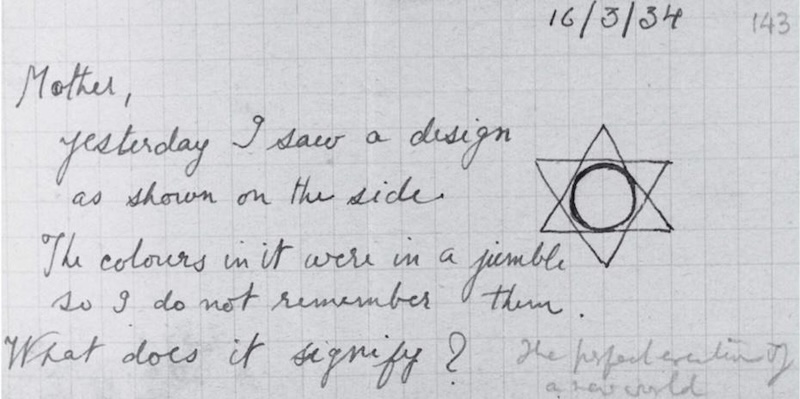 16/3/34 143
Mother,
yesterday I saw a design
as shown on the side.
The colours in it were in a jumble
so I do not remember them.
What does it signify?
The perfect creation of
a new world